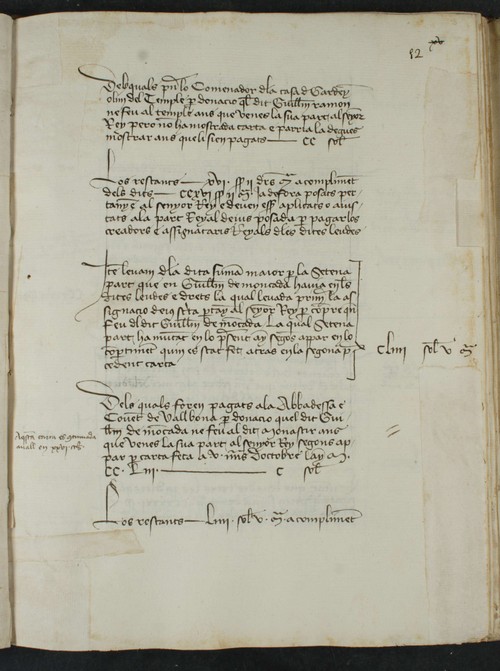 52
Dels quals pres lo Comenador dla casa d Gardey
olim del Temple p donacio ql dit Guillm ramon
ne feu al temple ans que venes la sua part al senyor
Rey pero no ha mostrada carta e paria la degues
mostrar ans que li sien pagats CC sol
Los restants XVI ss II drs a compliment
dels dits CCXVI ss II la desora posats per
tanyen al senyor Rey e deuen esser aplicats o aius
tats ala part Reyal deius posada p pagar los
creadors e assignataris Reyals dles dites leudes
Ite levam dla dita suma maior p la Setena
part que en Guillm de moncada havia en les
dites leudes e drets la qual levada prim la as
signacio deu ptany al senyor Rey p compre qn
feu dl dit Guillm de mocada. La qual Setena
part ha mutat en lo psent ay segos appar en lo
comptiment quin es stat fet atras en la segona p
cedent carta
CLIIII sol V
Dels quals foren pagats ala Abbadessa e
Covet de Vallbona p donacio quel dit Gui
llm de mocada ne feu al dit monastir ans
que venes la sua part al senyor Rey segons ap
par p carta feta a V Doctobre lay M
CC LIII C sol
Aqsta carta es
en XXVI
Los restants LIIII sol V a compliment